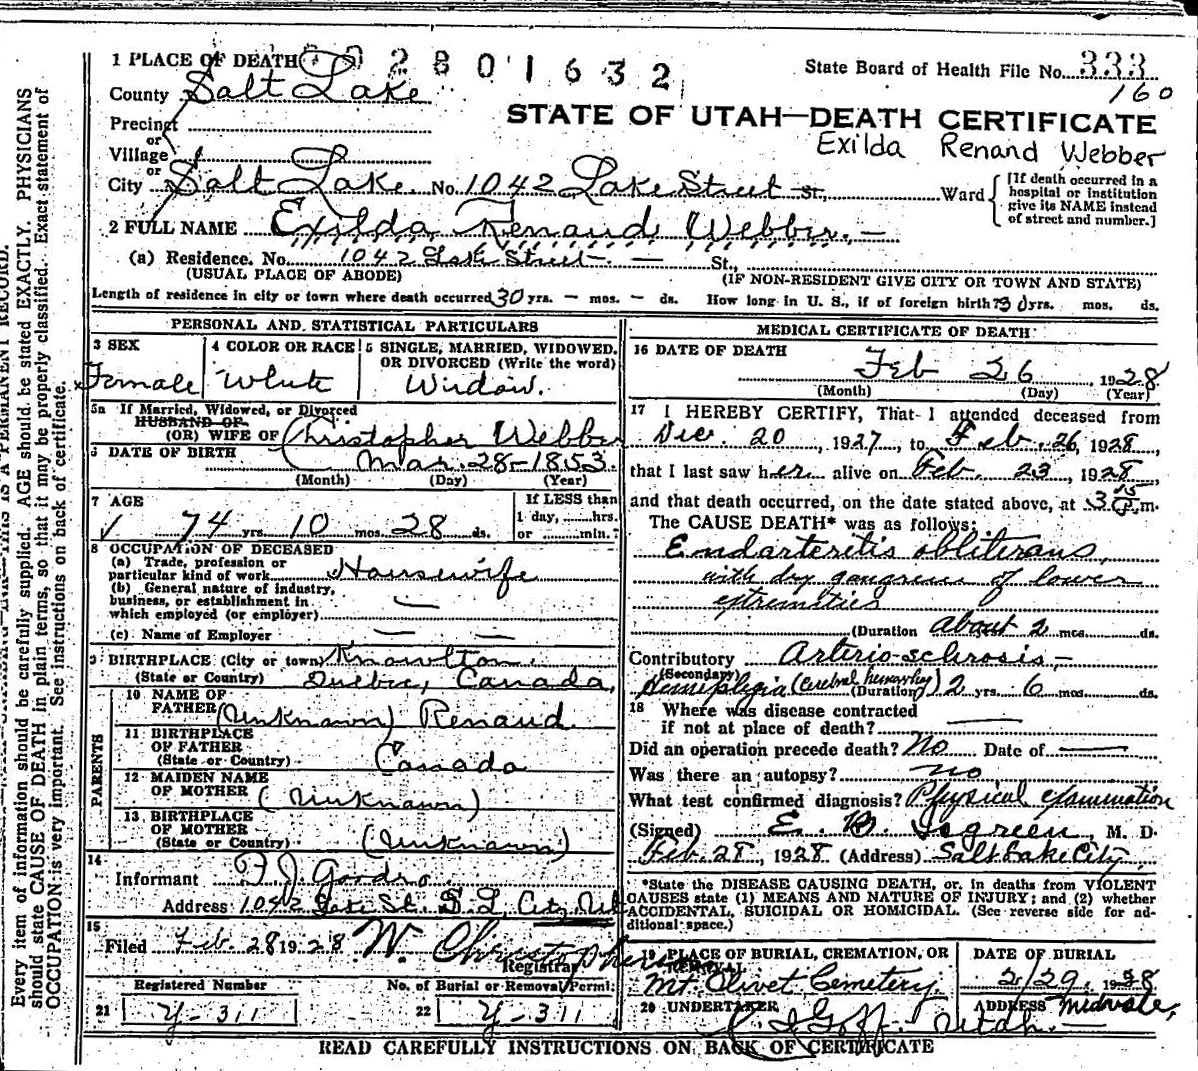 1 PLACE OF DEATH 2801632
State Board of Health File No. 333
160
County Salt Lake
STATE OF UTAH—DEATH CERTIFICATE
Precinct
or
Exilda Renand Webber
Village
or
City Salt Lake No. 1042 Lake Street St., Ward
[If death occurred in a hospital or institution give its NAME instead of street and number.]
2 FULL NAME Exilda Renaud Webber. —
(a) Residence. No. 1042 Lake Street — St.,
(USUAL PLACE OF ABODE) (IF NON-RESIDENT GIVE CITY OR TOWN AND STATE)
Length of residence in city or town where death occurred 30 yrs. — mos. — ds. How long in U. S., if of foreign birth? 30 yrs. mos. ds.
PERSONAL AND STATISTICAL PARTICULARS
3 SEX 4 COLOR OR RACE 5 SINGLE, MARRIED, WIDOWED, OR DIVORCED (Write the word)
Female White Widow.
5a If Married, Widowed, or Divorced
HUSBAND OF
(OR) WIFE OF Christopher Webber
6 DATE OF BIRTH Mar. 28-1853.
(Month) (Day) (Year)
7 AGE If LESS than
74 yrs. 10 mos. 28 ds. 1 day, hrs.
or min.?
8 OCCUPATION OF DECEASED
(a) Trade, profession or
particular kind of work Housewife
(b) General nature of industry,
business, or establishment in
which employed (or employer) —
(c) Name of Employer — —
9 BIRTHPLACE (City or town) Knowlton,
(State or Country) Quebec, Canada,
PARENTS
10 NAME OF
FATHER (Unknown) Renaud.
11 BIRTHPLACE
OF FATHER
(State or Country) Canada
12 MAIDEN NAME
OF MOTHER (Unknown)
13 BIRTHPLACE
OF MOTHER
(State or Country) (Unknown)
14
Informant F. J. Goodro
Address 1042 Lake St. S. L. City Ut
15
Filed Feb. 28 1928 W. Christopherson
Registrar
Registered Number No. of Burial or Removal Permit
21 Y-311 22 Y-311
MEDICAL CERTIFICATE OF DEATH
16 DATE OF DEATH
Feb 26, 1928
(Month) (Day) (Year)
17 I HEREBY CERTIFY, That I attended deceased from
Dec. 20, 1927, to Feb. 26, 1928,
that I last saw her alive on Feb. 23, 1928,
and that death occurred, on the date stated above, at 3 15 P.m.
The CAUSE DEATH* was as follows:
Endarteritis obliterans,
with dry gangrene of lower
extremities
(Duration about 2 mos. ds.
Contributory Arterio-schrosis,-
(Secondary)
Hemiplegia (Cerebral hemorrhag) (Duration) 2 yrs. 6 mos. ds.
18 Where was disease contracted
if not at place of death? —
Did an operation precede death? No Date of —
Was there an autopsy? no
What test confirmed diagnosis? Physical examination
(Signed) E. B. Isgreen, M. D.
Feb. 28, 1928 (Address) Salt Lake City.
*State the DISEASE CAUSING DEATH, or, in deaths from VIOLENT
CAUSES state (1) MEANS AND NATURE OF INJURY; and (2) whether
ACCIDENTAL, SUICIDAL OR HOMICIDAL. (See reverse side for ad-
ditional space.)
19 PLACE OF BURIAL, CREMATION, OR REMOVAL DATE OF BURIAL
Mt. Olivet Cemetery. 2/29, 1928
20 UNDERTAKER ADDRESS Midvale,
Goff. Utah. —
READ CAREFULLY INSTRUCTIONS ON BACK OF CERTIFICATE
THIS IS A PERMANENT RECORD.
Every item of information should be carefully supplied. AGE should be stated EXACTLY. PHYSICIANS
should state CAUSE OF DEATH in plain terms, so that it may be properly classified. Exact statement of
OCCUPATION is very important. See instructions on back of certificate.